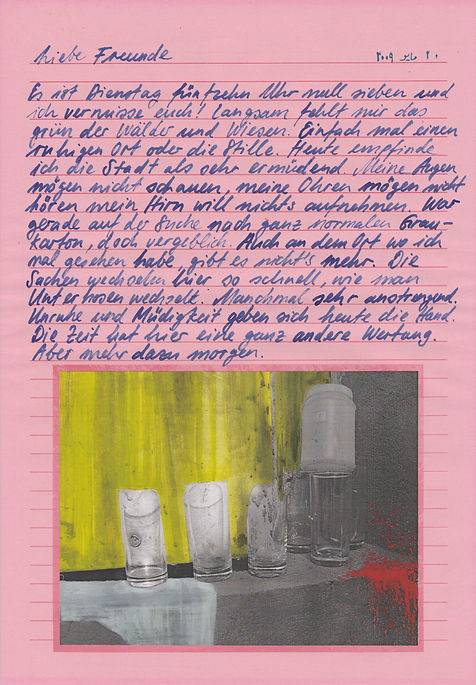 Liebe Freunde
مايو ٢٠٠٩
Es ist Dienstag fünfzehn Uhr null sieben und
ich vermisse euch! Langsam fehlt mir das
grün der Wälder und Wiesen. Einfach mal einen
ruhigen Ort oder die Stille. Heute empfinde
ich die Stadt als sehr ermüdend. Meine Augen
mögen nicht schauen, meine Ohren mögen nicht
hören mein Hirn will nichts aufnehmen. War
gerade auf der Suche nach ganz normalen Grau-
karton, doch vergeblich. Auch an dem Ort wo ich
mal gesehen habe, gibt es nichts mehr. Die
Sachen wechseln hier so schnell, wie man
Unterhosen wechselt. Manchmal sehr anstrengend.
Unruhe und Müdigkeit geben sich heute die Hand.
Die Zeit hat hier eine ganz andere Wertung.
Aber mehr dazu morgen.